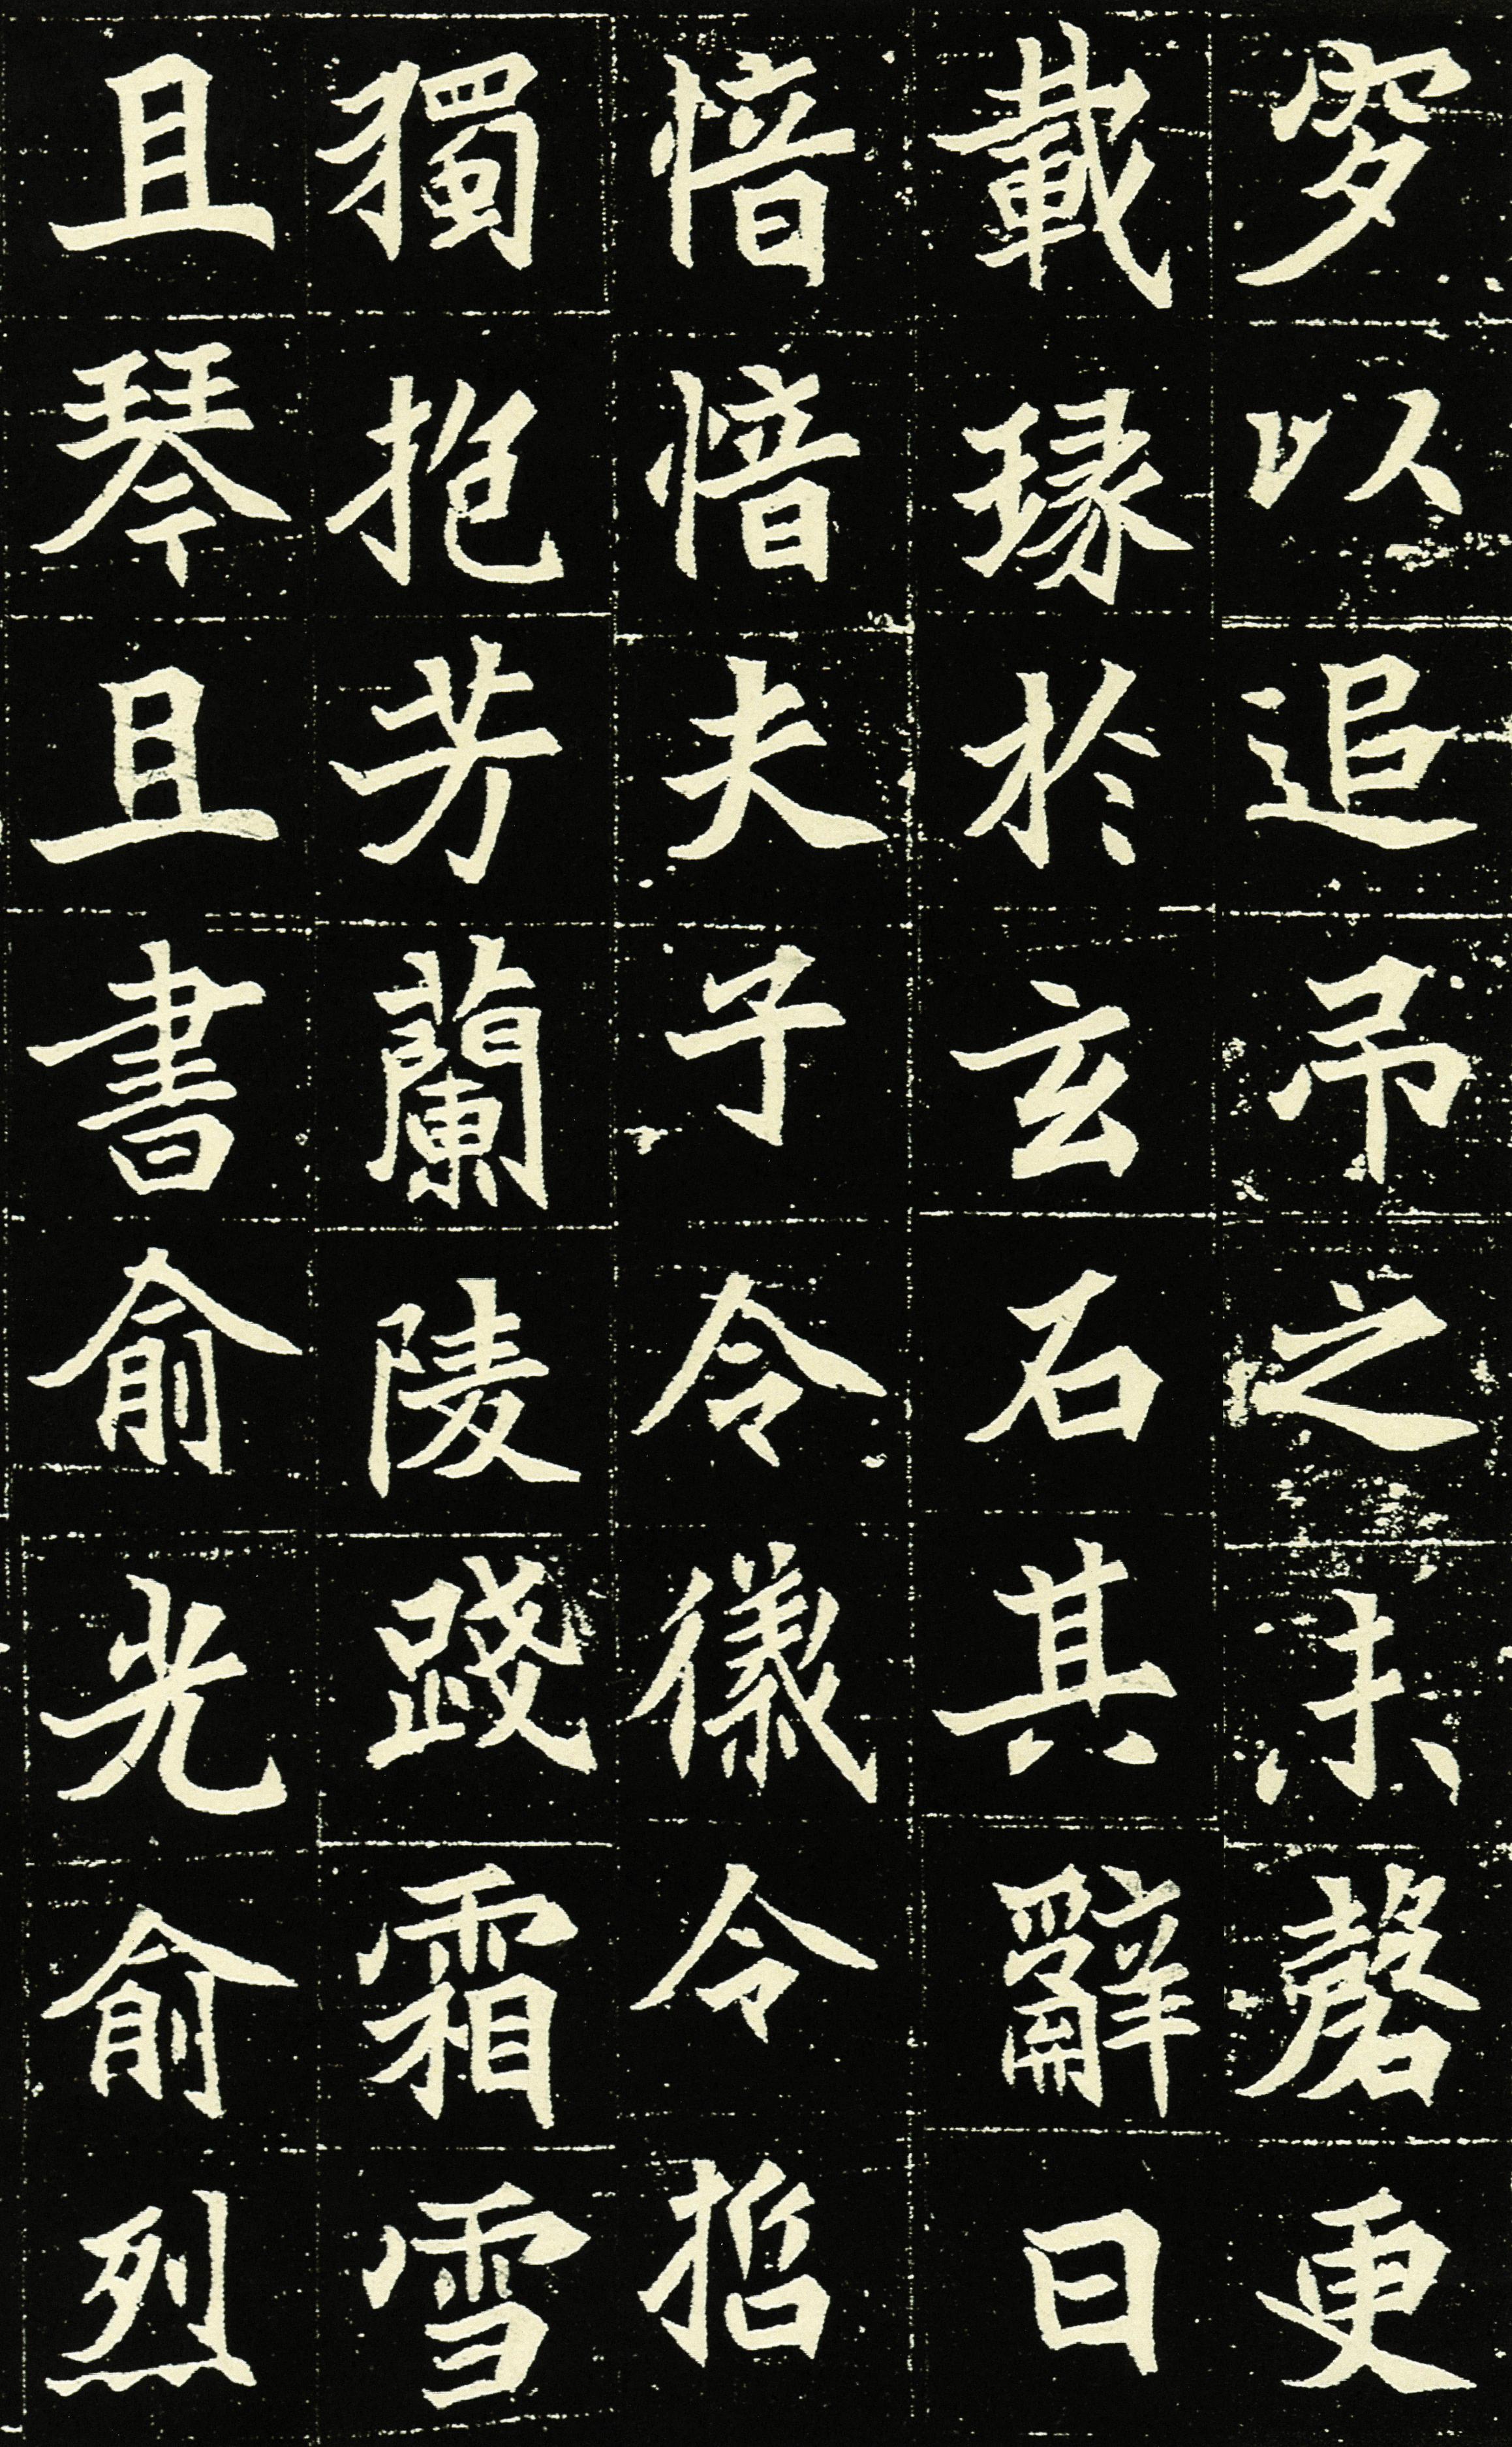 穸以追吊之未罄更
載琢於玄石其辭曰
愔愔夫子令儀令哲
獨抱芳蘭陵踐霜雪
且琴且書俞光俞烈